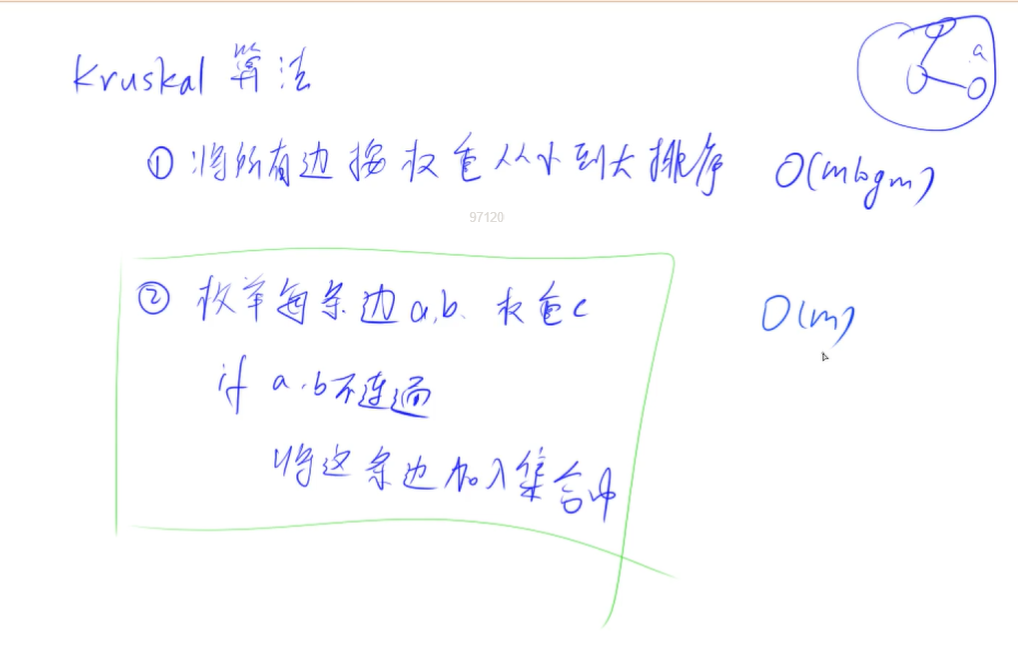 Kruskal 算法
a
① 将所有边按权重从小到大排序 O(mlogm)
97120
② 枚举每条边a,b. 权重c O(m)
if a,b不连通
将这条边加入集合中